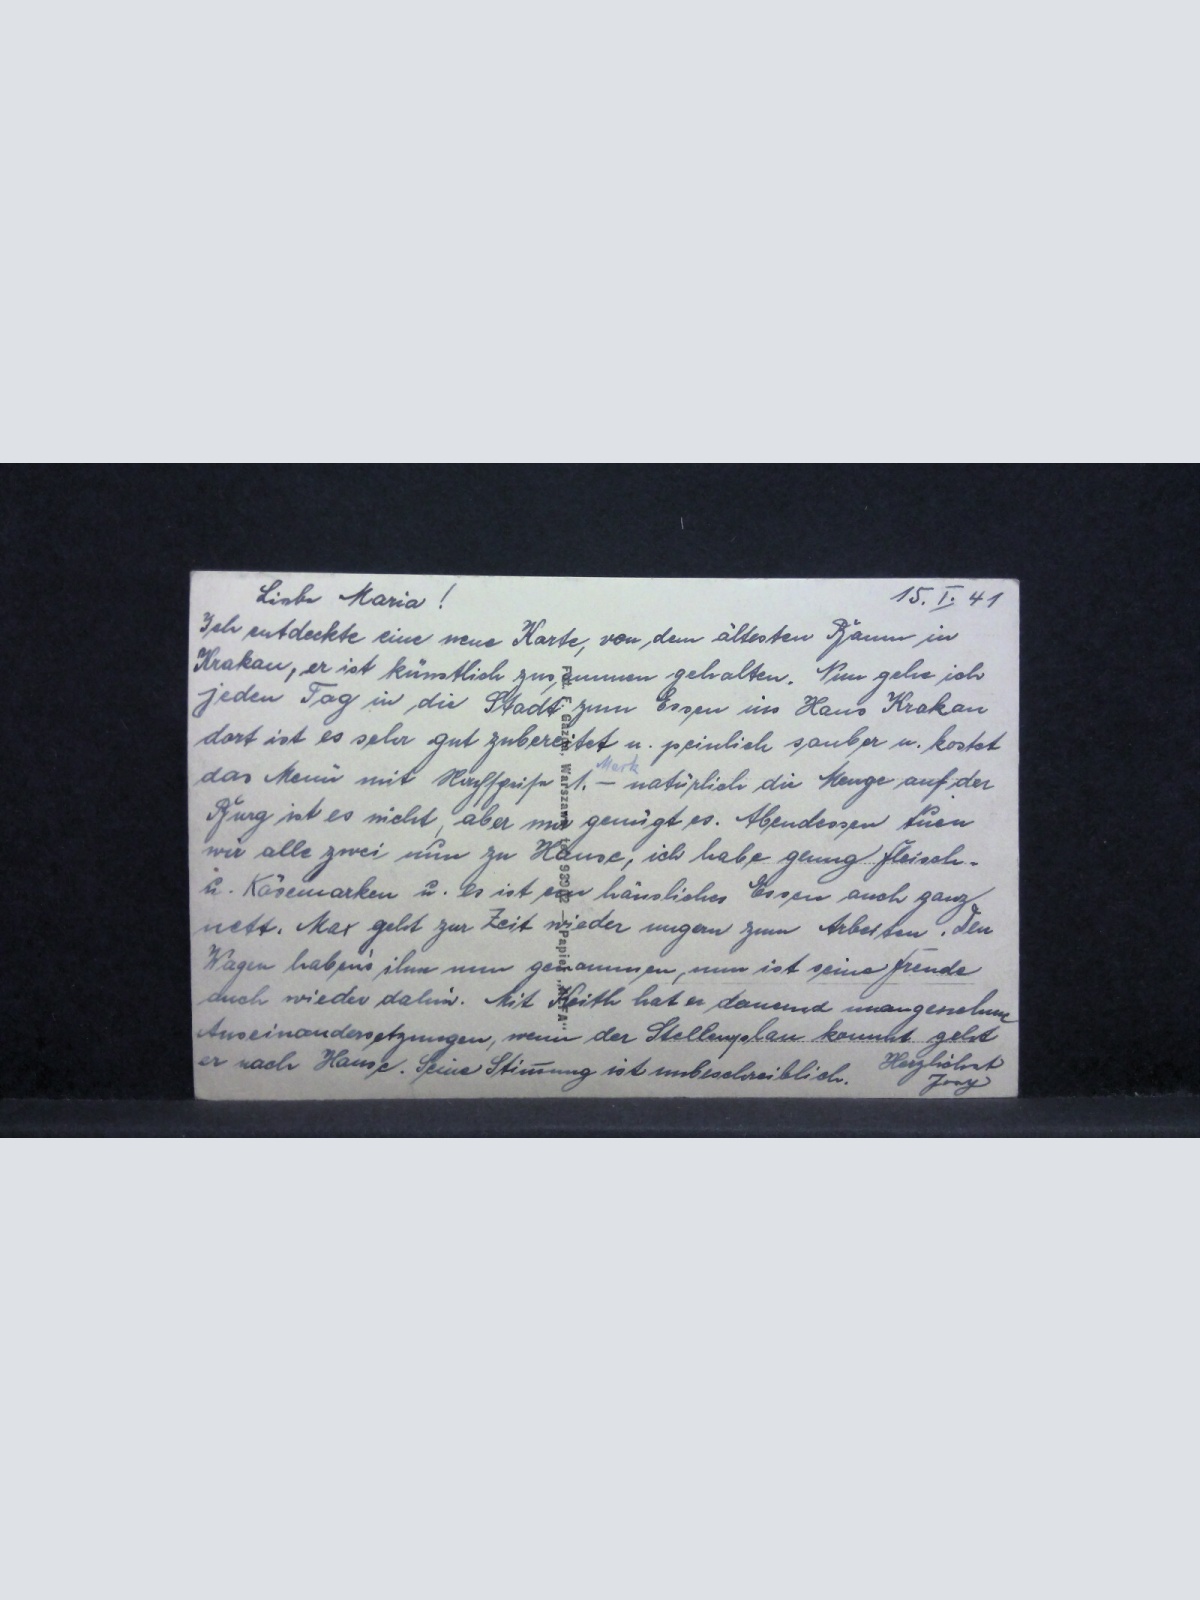 Liebe Maria! 15. I. 41
Ich entdeckte eine neue Karte, von dem ältesten Baum in
Krakau, er ist künstlich zusammen gehalten. Nun gehe ich
jeden Tag in die Stadt zum Essen ins Haus Krakau
dort ist es sehr gut zubereitet u. peinlich sauber u. kostet
das Menü mit 1.— Mark natürlich die Menge auf der
Burg ist es nicht, aber mir genügt es. Abendessen tuen
wir alle zwei nun zu Hause, ich habe genug Fleisch-
u. Käsemarken u. es ist ein häusliches Essen auch ganz
nett. Max geht zur Zeit wieder ungern zum Arbeiten. Den
Wagen haben's ihm nun genommen, nun ist seine Freude
auch wieder dahin. Mit Keith hat er dauernd unangenehme
Auseinandersetzungen, wenn der Stellenplan kommt geht
er nach Hause. Seine Stimmung ist unbeschreiblich. Herzlichst
Josy
Fot. Warszawa Papier "ALFA"